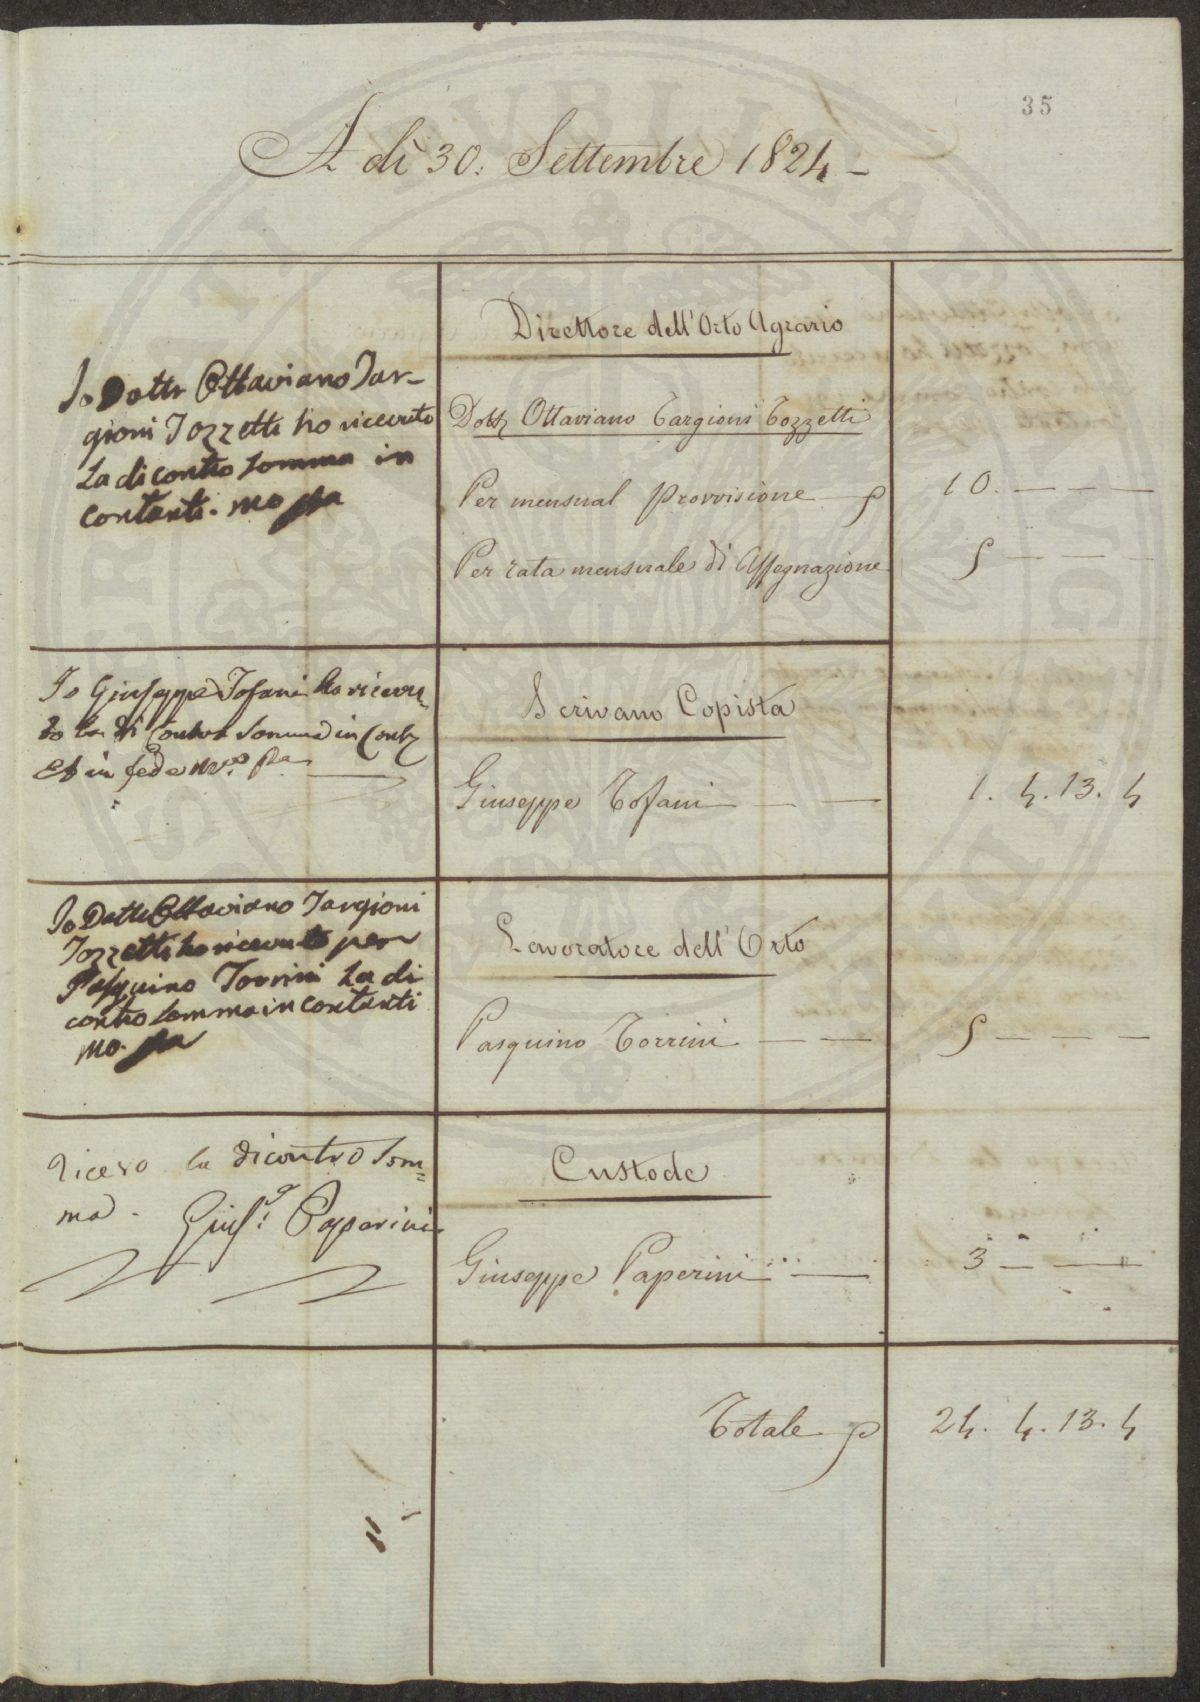 35
A dì 30. Settembre 1824 –
Io Dottr Ottaviano Tar-
gioni Tozzetti ho ricevuto
La di contro Somma in
contanti. mo ppa
Direttore dell'Orto Agrario
Dott. Ottaviano Targioni Tozzetti
Per mensual provvisione 10. — — —
Per rata mensuale di Assegnazione 5 — — —
Io Giuseppe Tofani ho ricevu
to la di Contro Somma in
Et in fede mo. pa
Scrivano Copista
Giuseppe Tofani — — 1. 4. 13. 4
Io Dottr Ottaviano Targioni
Tozzetti ho ricevuto per
Pasquino Torrini La di
contro Somma in contanti
mo. ppa
Lavoratore dell'Orto
Pasquino Torrini — — 5 — — —
Ricevo la dicontro Som=
ma. Giuse. Paperini
Custode
Giuseppe Paperini — 3 — —
Totale 24. 4. 13. 4